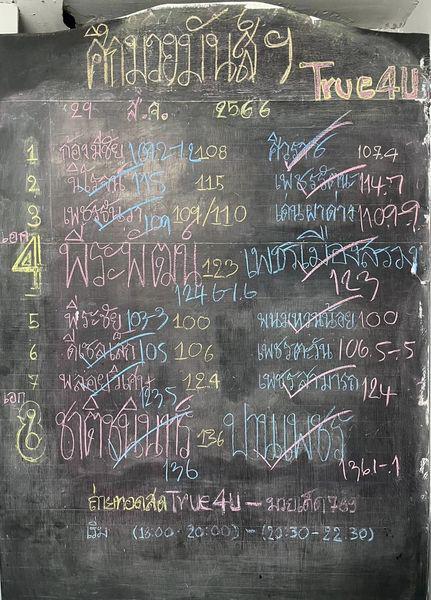 ศึกมวยมันส์ ๆ
True4U
29 ส.ค. 2566
1 ก้องมีชัย 108 107.4
2 115 เพชรรัตนะ 114.7
3 109 109/110 เด่นผาด่าง 110.9-.9
เอก
4 พีระพัฒน์ 123 เพชรเมืองสรวง
124.6-1.6 123
5 พีระชัย 103-.3 100 พนมหวานน้อย 100
6 ดีเซลเล็ก 105 106 เพชรตะวัน 106.5-.5
7 พลอยวิเศษ 124 เพชรสามารถ 124
123.5
เอก
8 ชาติชนินทร์ 136 ปานเพชร
136 136.1-.1
ถ่ายทอดสด True4U – มวยเด็ด 789
เริ่ม (18:00 - 20:00) - (20:30 - 22.30)